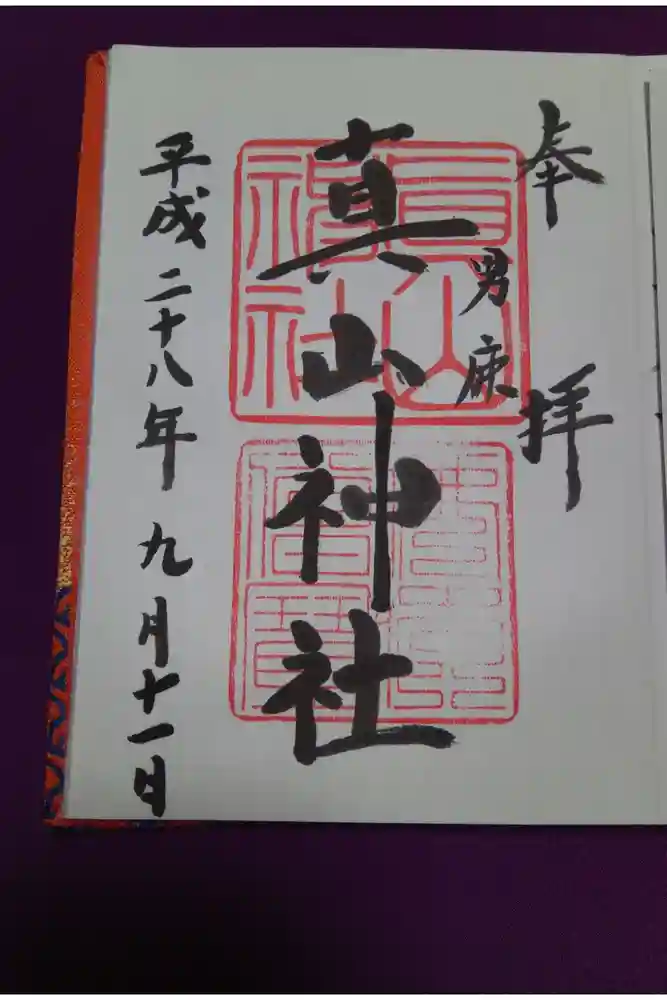 奉拝
男鹿
真山神社
平成二十八年九月十一日